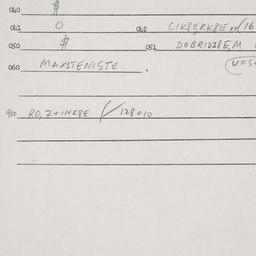 040 $
041 0 042 CIK8ERK8E
050 $ 052 DOBRIDZ8E, M
060 MAXSTENISTE .
900 RD, Z+INK8E / 128010